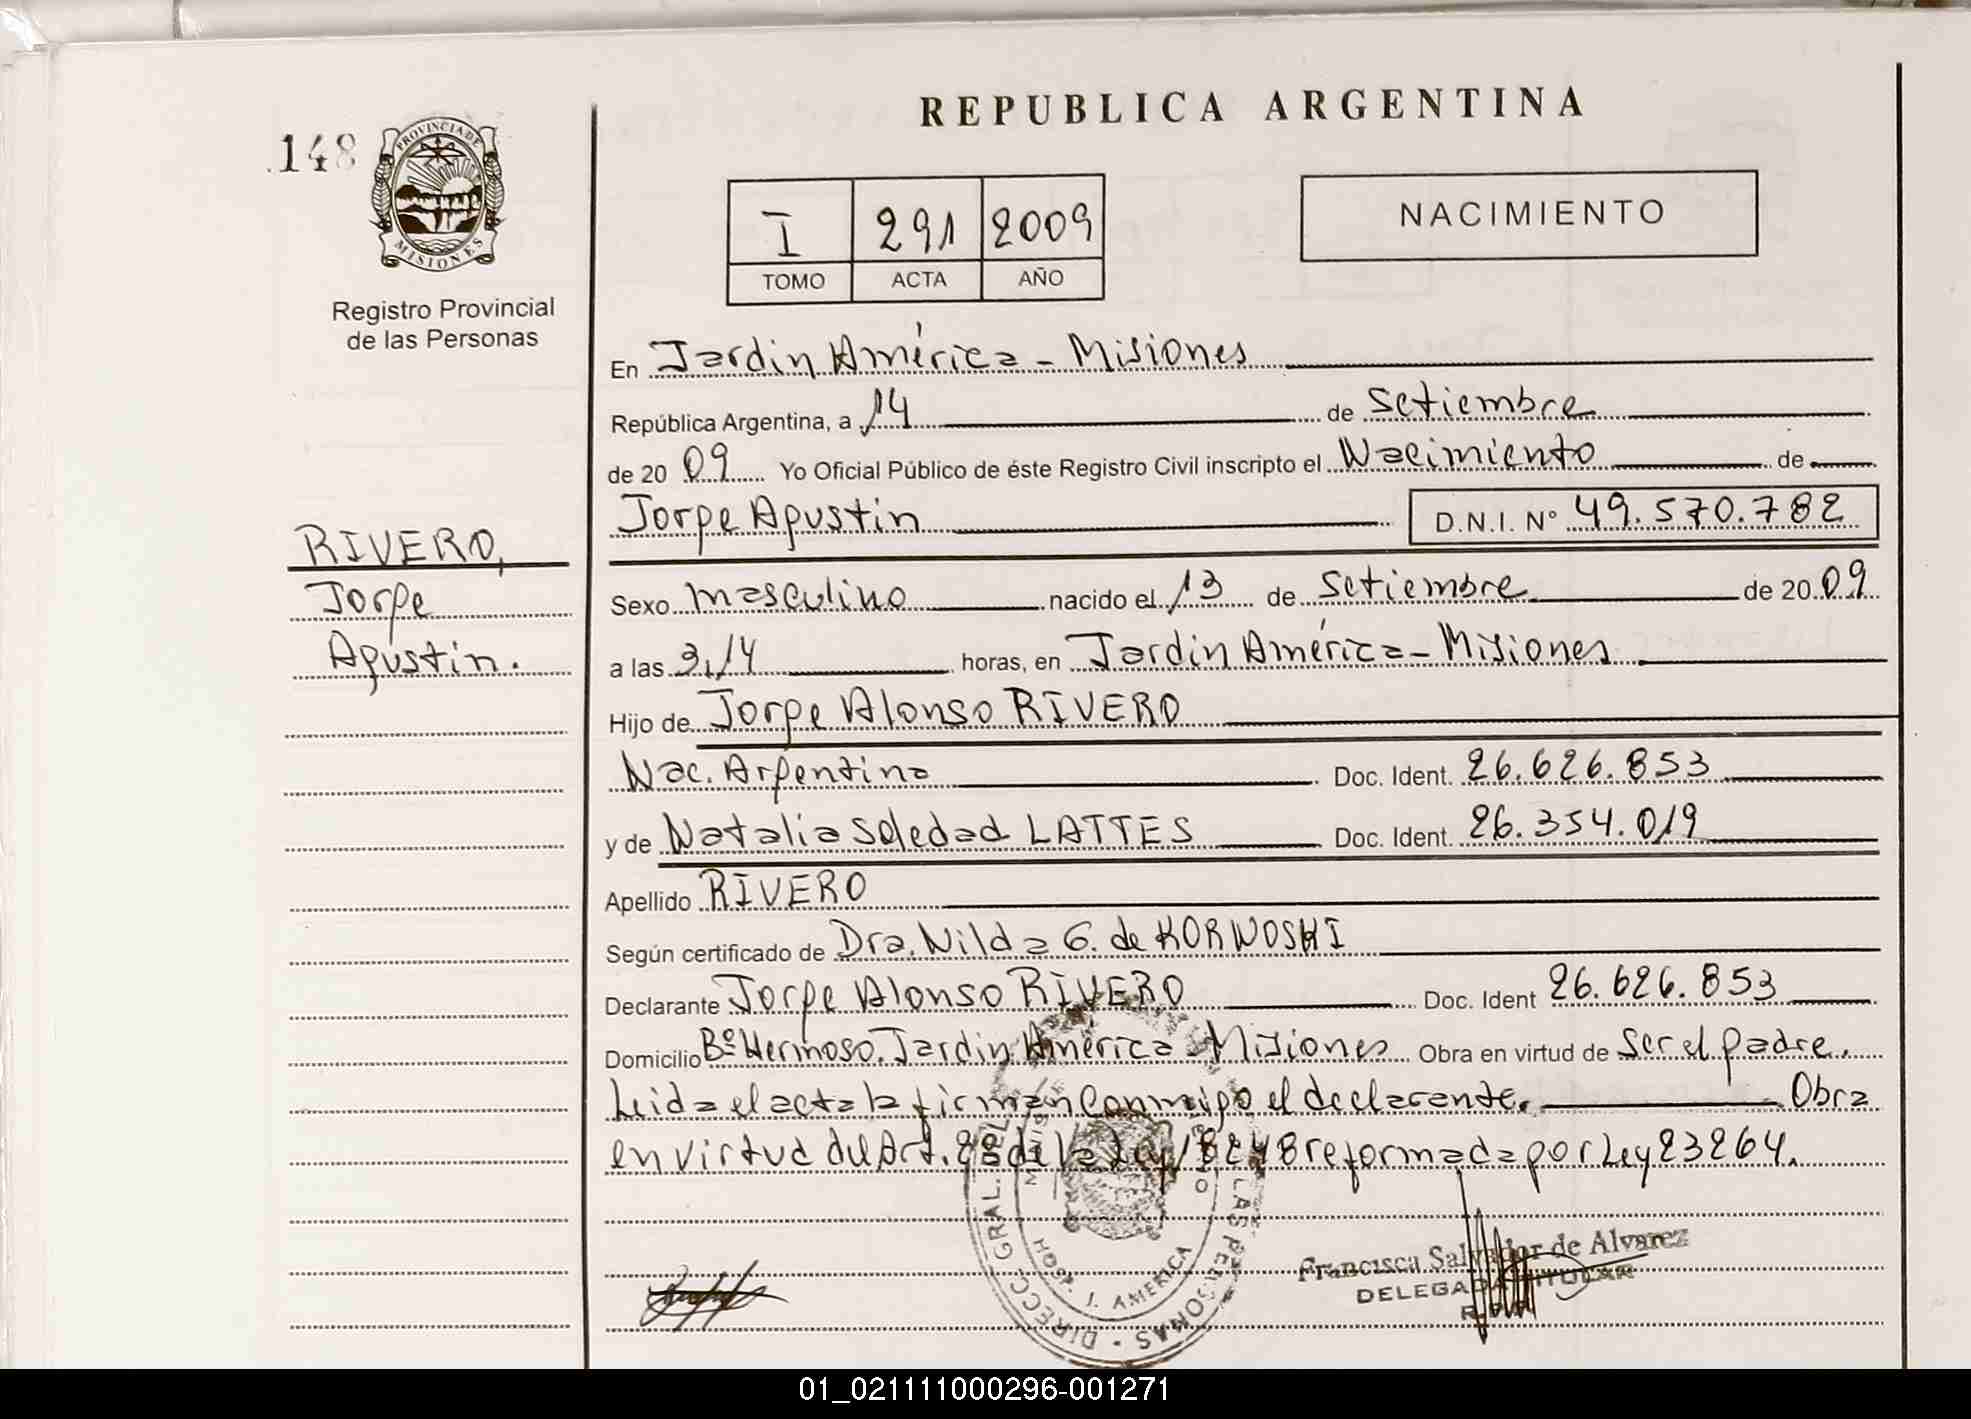 REPUBLICA ARGENTINA
148
PROVINCIA DE
MISIONES
Registro Provincial
de las Personas
I 291 2009
TOMO ACTA AÑO
NACIMIENTO
En Jardin América - Misiones
República Argentina, a 14 de Setiembre
de 2009 Yo Oficial Público de éste Registro Civil inscripto el Nacimiento de
Jorge Agustin D.N.I. N° 49.570.782
RIVERO,
Jorge
Agustin.
Sexo masculino nacido el 13 de Setiembre de 2009
a las 3,14 horas, en Jardin América - Misiones
Hijo de Jorge Alonso RIVERO
Nac. Argentina Doc. Ident. 26.626.853
y de Natalia Soledad LATTES Doc. Ident. 26.354.019
Apellido RIVERO
Según certificado de Dra. Nilda G. de KORNOSKI
Declarante Jorge Alonso RIVERO Doc. Ident 26.626.853
Domicilio Bº Hermoso. Jardin América - Misiones Obra en virtud de Ser el padre.
Leida el acta la firman conmigo el declarante. Obra
en virtud del Art. 28 de la Ley 18248 reformada por Ley 23264.
DIRECC. GRAL. DEL LAS PERSONAS
HOSP. J. AMERICA
Francisca Salvador de Alvarez
DELEGADA TITULAR
R.P.P.
01_021111000296-001271